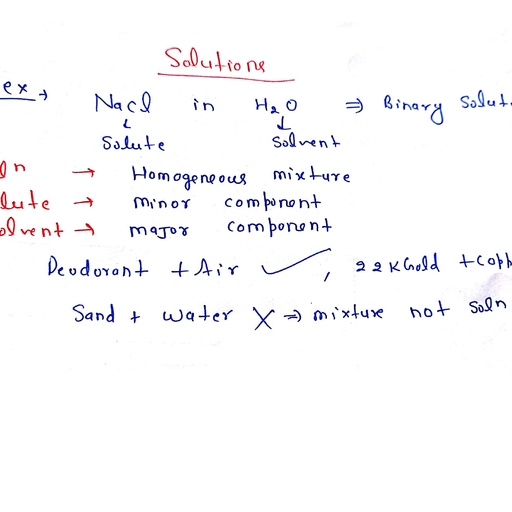 Solutions
ex → Nacl in H₂O ⇒ Binary Solut
↓ ↓
Solute Solvent
ln → Homogeneous mixture
lute → minor component
olvent → major component
Deodorant + Air ✓, 22K Gold + Copp
Sand + water X ⇒ mixture not Soln